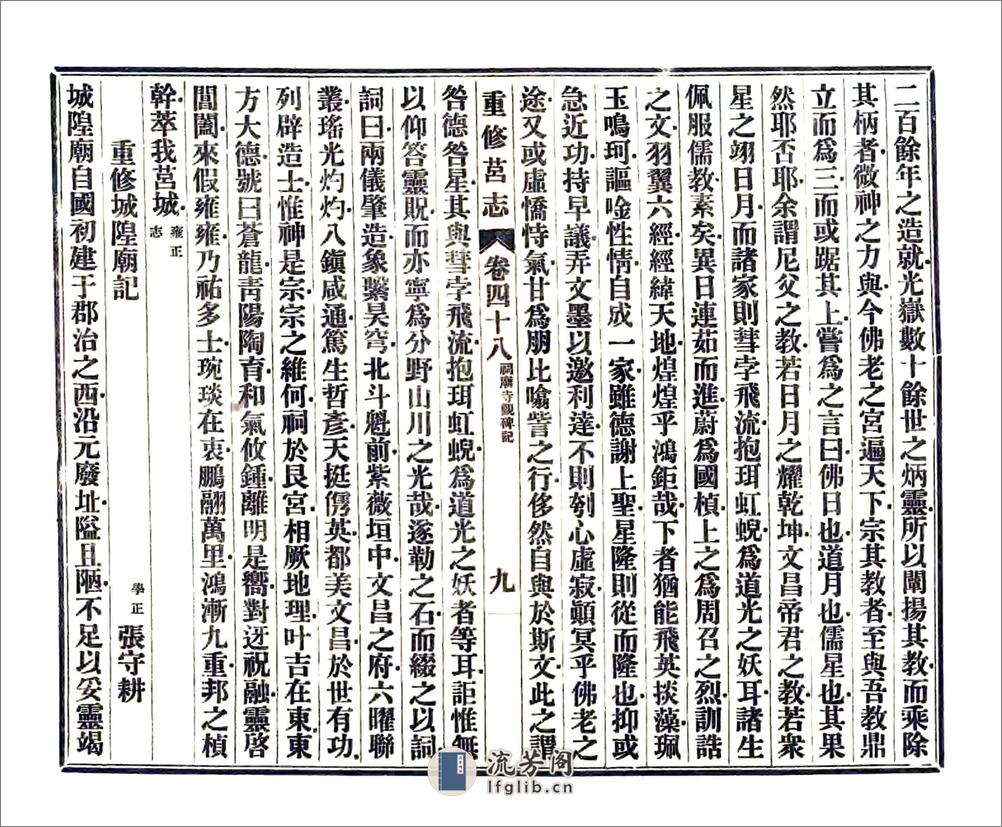 二百餘年之造就光嶽數十餘世之炳靈所以闡揚其教而乘除
其柄者微神之力與今佛老之宮遍天下宗其教者至與吾教鼎
立而爲三而或踞其上嘗爲之言曰佛日也道月也儒星也其果
然耶否耶余謂尼父之教若日月之耀乾坤文昌帝君之教若衆
星之翊日月而諸家則彗孛飛流抱珥虹蜺爲道光之妖耳諸生
佩服儒教素矣異日連茹而進蔚爲國楨上之爲周召之烈訓誥
之文羽翼六經經緯天地煌煌乎鴻鉅哉下者猶能飛英掞藻珮
玉鳴珂謳唫性情自成一家雖德謝上聖星隆則從而隆也抑或
急近功持早議弄文墨以邀利達不則刳心虛寂顛冥乎佛老之
途又或虛憍恃氣甘爲朋比噏訾之行侈然自與於斯文此之謂
重修莒志 卷四十八 祠廟寺觀碑記 九
咎德咎星其與彗孛飛流抱珥虹蜺爲道光之妖者等耳詎惟無
以仰答靈貺而亦寧爲分野山川之光哉遂勒之石而綴之以詞
詞曰兩儀肇造象繫昊穹北斗魁前紫薇垣中文昌之府六曜聯
叢瑤光灼灼八鎭咸通篤生哲彥天挺儁英都美文昌於世有功
列辟造士惟神是宗宗之維何祠於艮宮相厥地理叶吉在東東
方大德號曰蒼龍靑陽陶育和氣攸鍾離明是嚮對迓祝融靈啓
閶闔來假雍雍乃祐多士琬琰在衷鵬翮萬里鴻漸九重邦之楨
幹萃我莒城 雍正志
重修城隍廟記 學正 張守耕
城隍廟自國初建于郡治之西沿元廢址隘且陋不足以妥靈竭
流芳阁
lfglib.cn